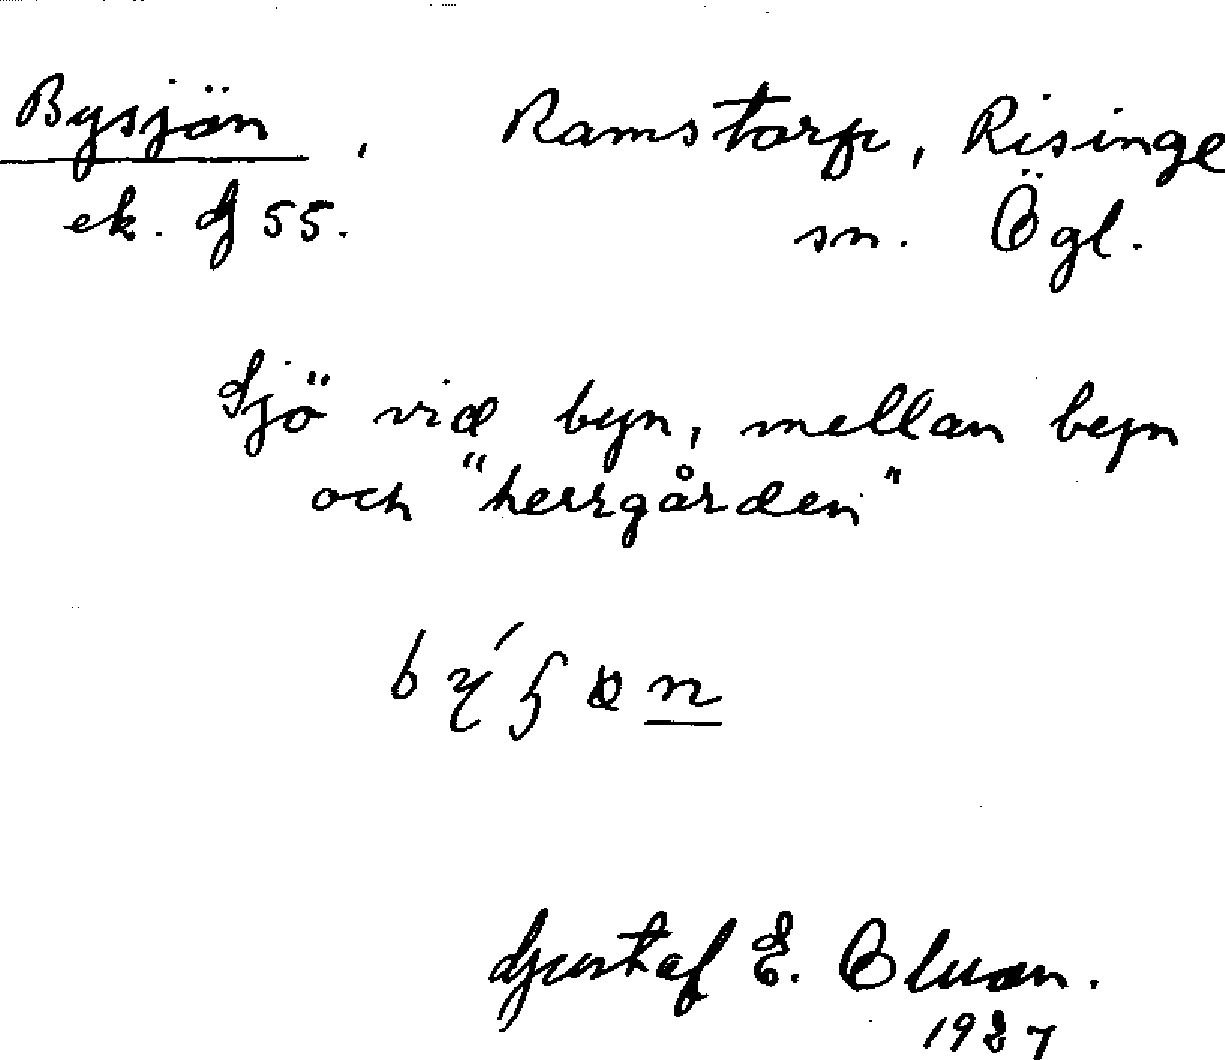 Bysjön, Ramstorp, Risinge
ek. G 55. sn. Ögl.
Sjö vid byn, mellan byn
och "herrgården"
Gustaf E. Oluan.
1927